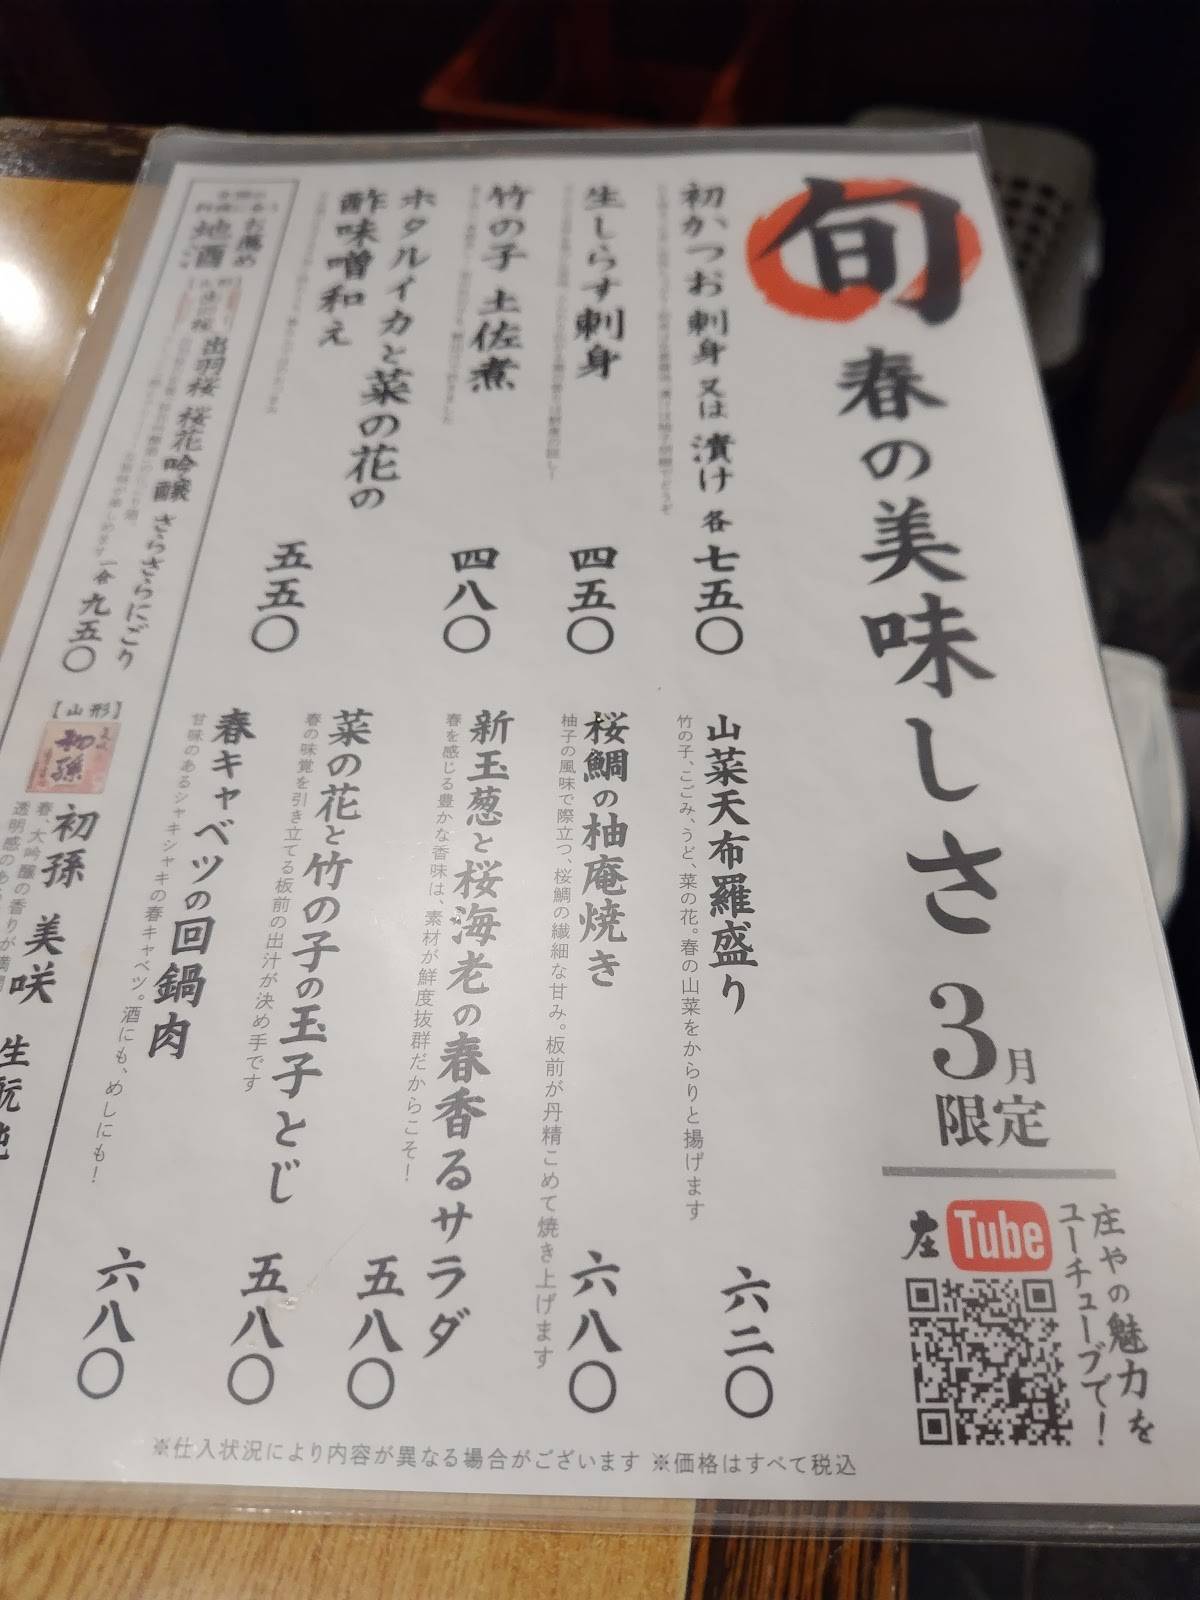 旬
春の美味しさ
3月
限定
庄やの魅力を
ユーチューブで!
庄Tube
初かつお刺身 又は 漬け 各 七五〇
生しらす刺身 四五〇
竹の子 土佐煮 四八〇
ホタルイカと菜の花の
酢味噌和え 五五〇
山菜天布羅盛り 六二〇
竹の子、こごみ、うど、菜の花。春の山菜をからりと揚げます
桜鯛の柚庵焼き 六八〇
柚子の風味で際立つ、桜鯛の繊細な甘み。板前が丹精こめて焼き上げます
新玉葱と桜海老の春香るサラダ 五八〇
春を感じる豊かな香味は、素材が鮮度抜群だからこそ!
菜の花と竹の子の玉子とじ 五八〇
春の味覚を引き立てる板前の出汁が決め手です
春キャベツの回鍋肉 六八〇
甘味のあるシャキシャキの春キャベツ。酒にも、めしにも!
お薦め
地酒
出羽桜 桜花吟醸 さらさらにごり
一合 九五〇
【山形】
初孫
初孫 美咲 生酛純
春、大吟醸の香りが満開
透明感のあ
※仕入状況により内容が異なる場合がございます ※価格はすべて税込